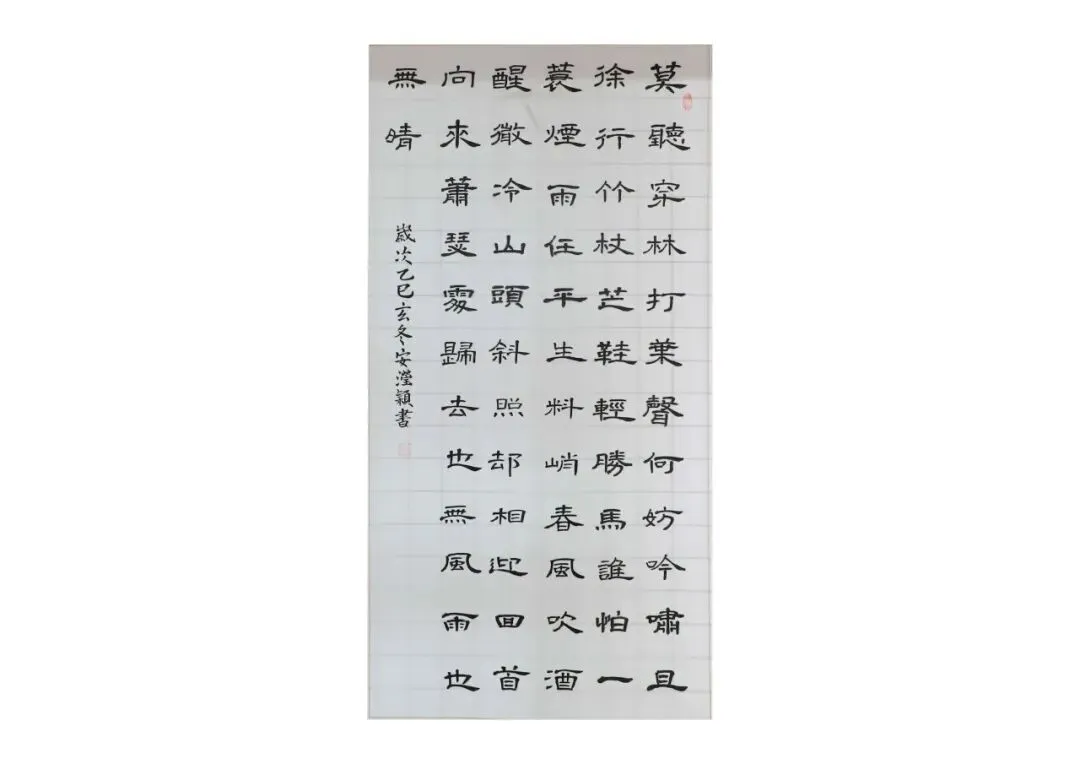 莫聽穿林打葉聲何妨吟嘯且
徐行竹杖芒鞋輕勝馬誰怕一
蓑煙雨任平生料峭春風吹酒
醒微冷山頭斜照却相迎回首
向來蕭瑟處歸去也無風雨也
無晴
歲次乙巳玄冬安瀅穎書